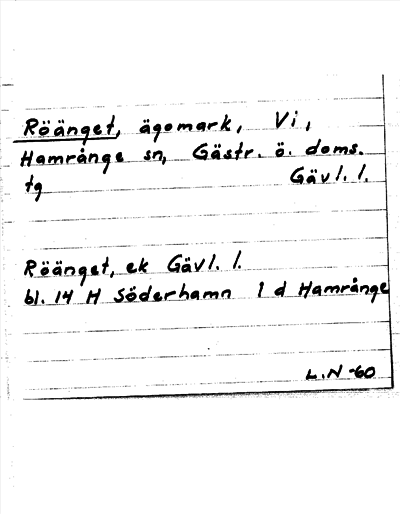 Röänget, ägomark, Vi,
Hamrånge sn, Gästr. ö. doms.
tg Gävl. l.
Röänget, ek Gävl. l.
bl. 14 H Söderhamn 1 d Hamrånge
L.N -60